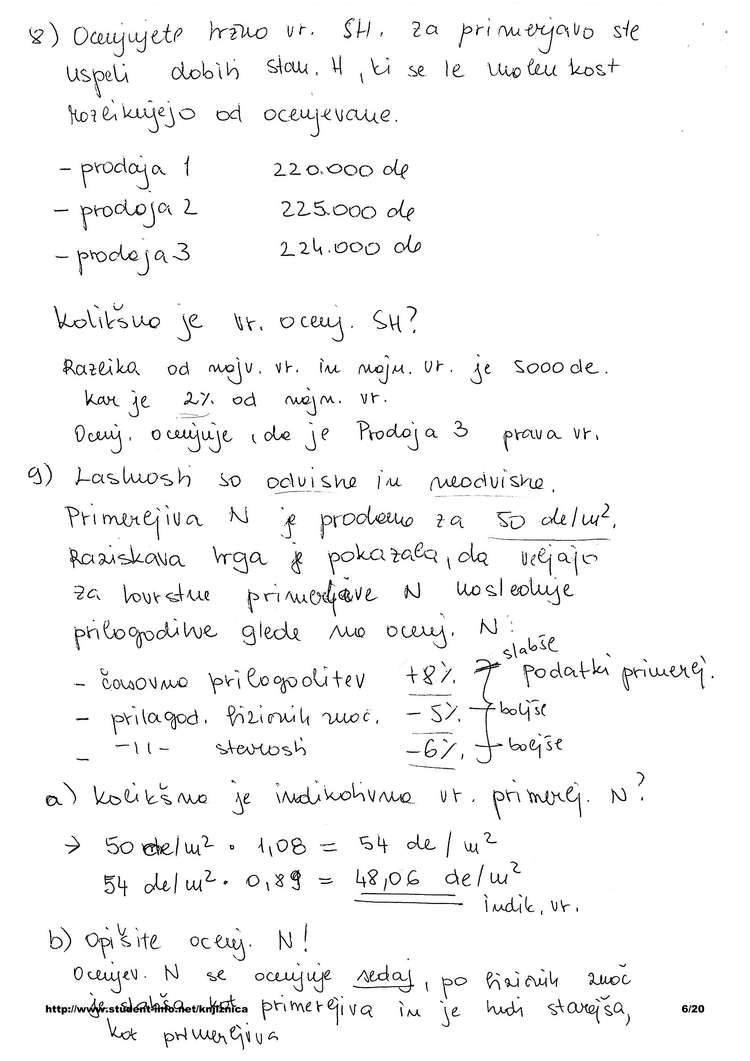 8) Ocenjujete tržno vr. SH. Za primerjavo ste
uspeli dobiti stan. H, ki se le malenkost
razlikujejo od ocenjevane.
- prodaja 1 220.000 de
- prodaja 2 225.000 de
- prodaja 3 224.000 de
Kolikšno je vr. ocenj. SH?
Razlika od najv. vr. in najn. vr. je 5000 de.
kar je 2% od najn. vr.
Ocenj. ocenjuje, da je Prodaja 3 prava vr.
9) Lastnosti so odvisne in neodvisne.
Primerjiva N je prodano za 50 de/m².
Raziskava trga je pokazala, da veljajo
za tovrstne primerjive N naslednje
prilagoditve glede na ocenj. N:
- časovna prilagoditev +8% slabše podatki primerj.
- prilagod. fizičnih znač. - 5% boljše
- -11- starosti -6% boljše
a) Kolikšna je indikativna vr. primerj. N?
→ 50 de/m² • 1,08 = 54 de/m²
54 de/m² • 0,89 = 48,06 de/m²
indik. vr.
b) Opišite ocenj. N!
Ocenjev. N se ocenjuje sedaj, po fizičnih znač
je slabša kot primerejiva in je tudi starejša,
http://www.student-info.net/knjiznica 6/20
kot primerjiva